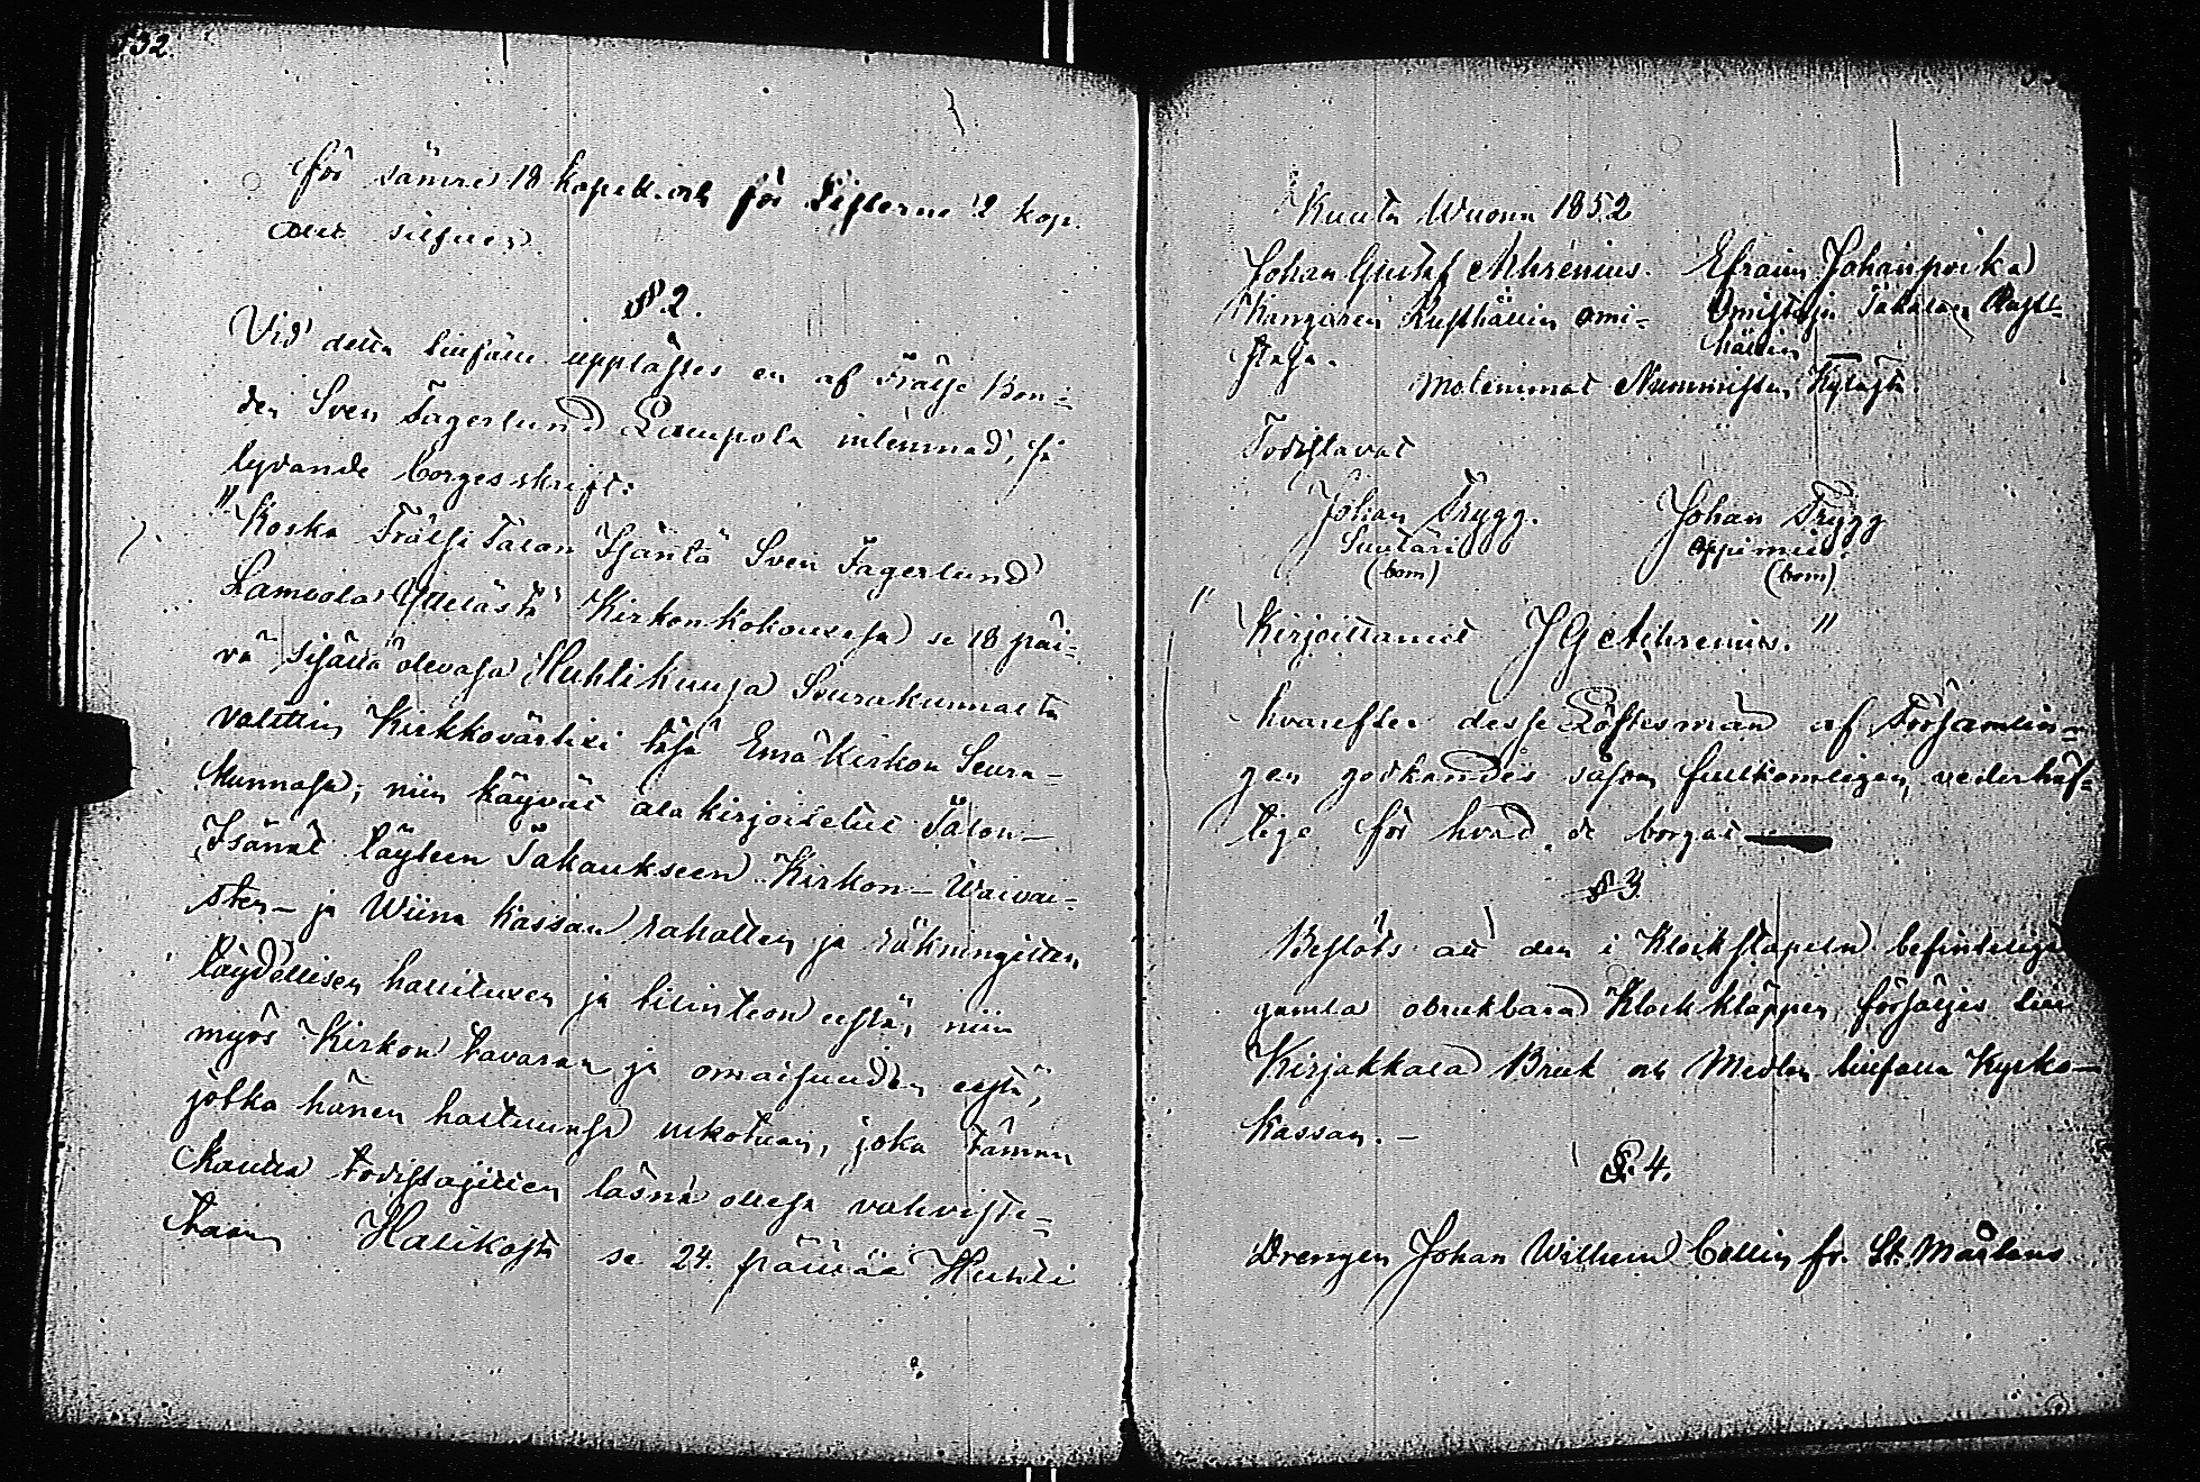 132.
för sämre 18 kopek. och för Listerne 2 kop.
allt silfver.
§ 2.
Vid detta tillfälle upplästes en af Frälse Bon-
den Sven Fagerlund Lampola inlemnad, så
lydande borgesskrift:
"Koska Frälsi Talon Isäntä Sven Fagerlund
Lamvola Kylästä Kirkonkokouxesa se 18 päi-
vä sisällä olevasa Huhtikuusa Seurakunnalta
valittin Kirkkovärtixi täsä Emä Kirkon Seura-
kunnasa; niin käyvät alakirjoitetut Talon-
Isännät täyteen Takaukseen Kirkon- Waivai-
sten- ja Wiina Kassan rahatten ja räkningitten
täydellisen hallituxen ja tilinteon eestä, niin
myös Kirkon tavaran ja omaisuuden eestä,
jotka hänen haltuunsa uskotaan, joka tämän
kautta todistajitten läsnä ollesa vahviste-
taan Halikosta se 24. päivää Huhti
Kuuta Wuonna 1852
Johan Gustaf Ahrenius. Efraim Johanpoika
Kangaren Rusthållin omi- Omistaja Takalan Rust-
staja. hållin
Molemmat Nummisten Kylästä.
Todistavat
Johan Trygg. Johan Trygg
Suutari oppimies.
(bom) (bom)
"Kirjoittanut J G Ahrenius."
hvarefter desse Löftesmän af Församlin-
gen godkändes såsom fullkomligen vederhäf-
tige för hvad de borgat
§ 3.
Beslöts att den i Klockstapeln befinteliga
gamla obrukbara Klock kläppen försäljes till
Kirjakkala Bruk och Medlen tillfalla Kyrko-
kassan. -
§. 4.
Drengen Johan Wilhelm Collin fr. St. Mårtens